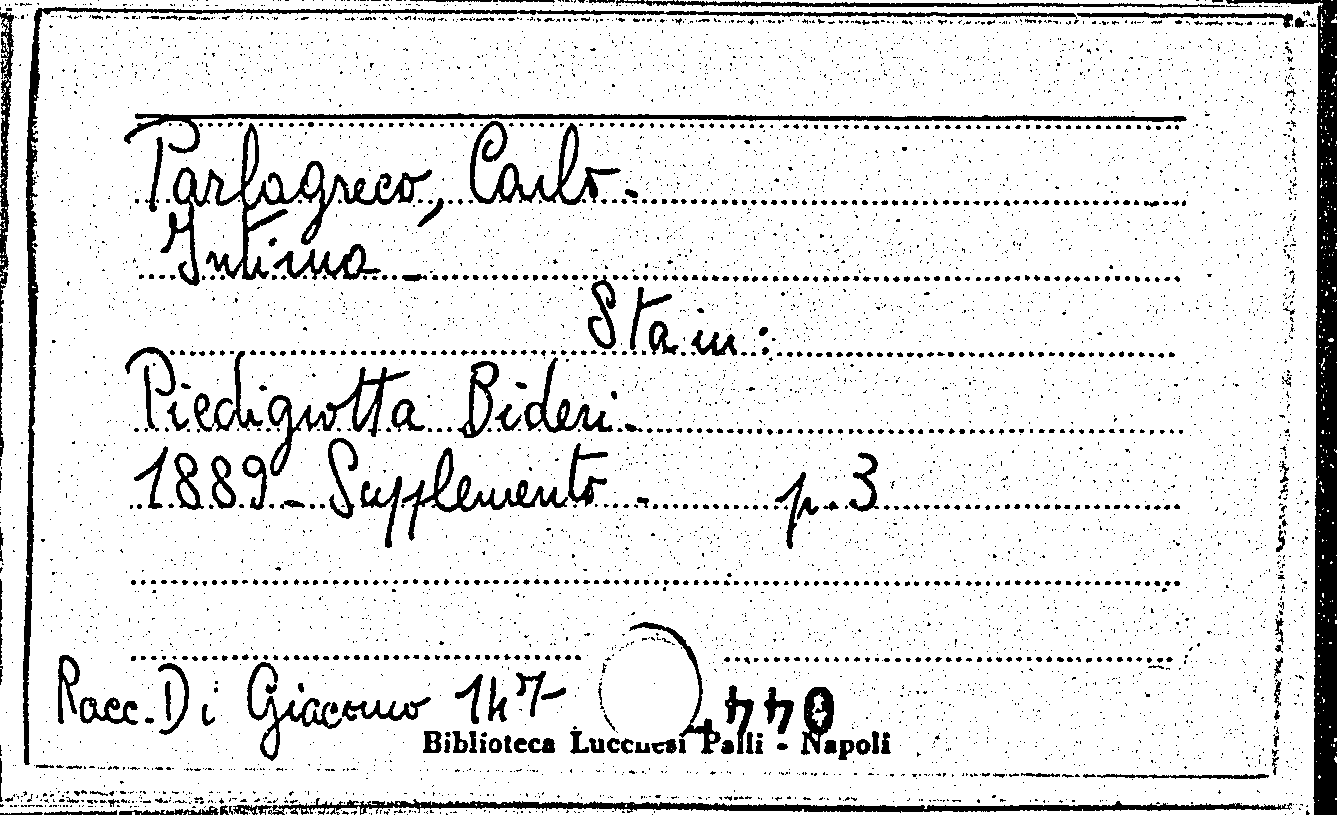 Parlagreco, Carlo.
Intima -
Sta in:
Piedigrotta Bideri.
1889 - Supplemento - p. 3
Racc. Di Giacomo 147
Biblioteca Lucchesi Palli - Napoli